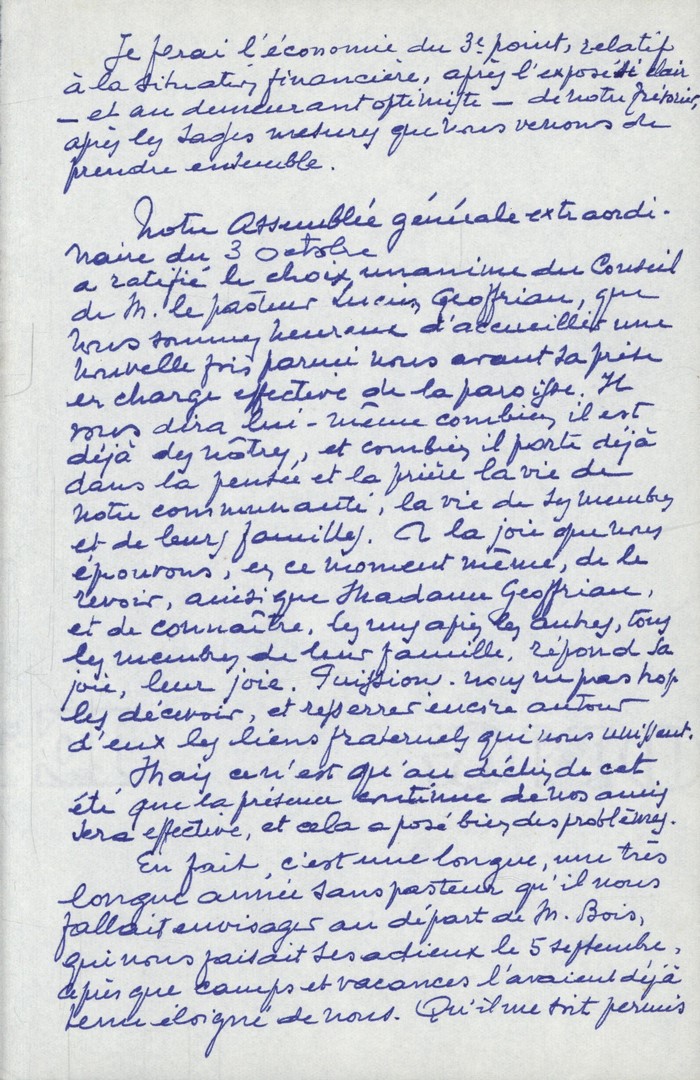 Je ferai l'économie du 3e point, relatif
à la situation financière, après l'exposé si clair
— et au demeurant optimiste — de notre trésorier,
après les sages mesures que nous venons de
prendre ensemble.
Notre Assemblée générale extraordi-
naire du 3 octobre
a ratifié le choix unanime du Conseil
de M. le pasteur Lucien Geoffriau, que
nous sommes heureux d'accueillir une
nouvelle fois parmi nous avant sa prise
en charge effective de la paroisse. Il
vous dira lui-même combien il est
déjà des nôtres, et combien il porte déjà
dans la pensée et la prière la vie de
notre communauté, la vie de ses membres
et de leurs familles. A la joie que nous
éprouvons, en ce moment même, de le
revoir, ainsi que Madame Geoffriau,
et de connaître, les uns après les autres, tous
les membres de leur famille, répond sa
joie, leur joie. Puissions-nous ne pas trop
les décevoir, et resserrer encore autour
d'eux les liens fraternels qui nous unissent.
Mais ce n'est qu'au déclin de cet
été que la présence continue de nos amis
sera effective, et cela a posé bien des problèmes.
En fait, c'est une longue, une très
longue année sans pasteur qu'il nous
fallait envisager au départ de M. Bois,
qui nous faisait ses adieux le 5 septembre,
après que camps et vacances l'avaient déjà
tenu éloigné de nous. Qu'il me soit permis